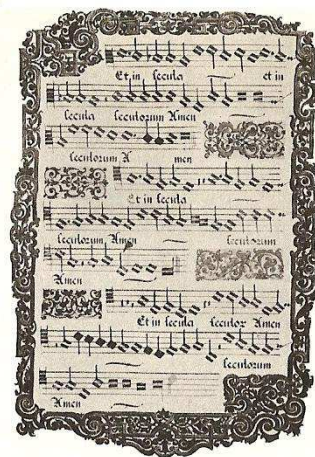 Et in secula et in
secula seculorum Amen
seculorum A men
Et in secula
seculorum, Amen seculorum
Amen
Et in secula seculor Amen
seculorum
Amen